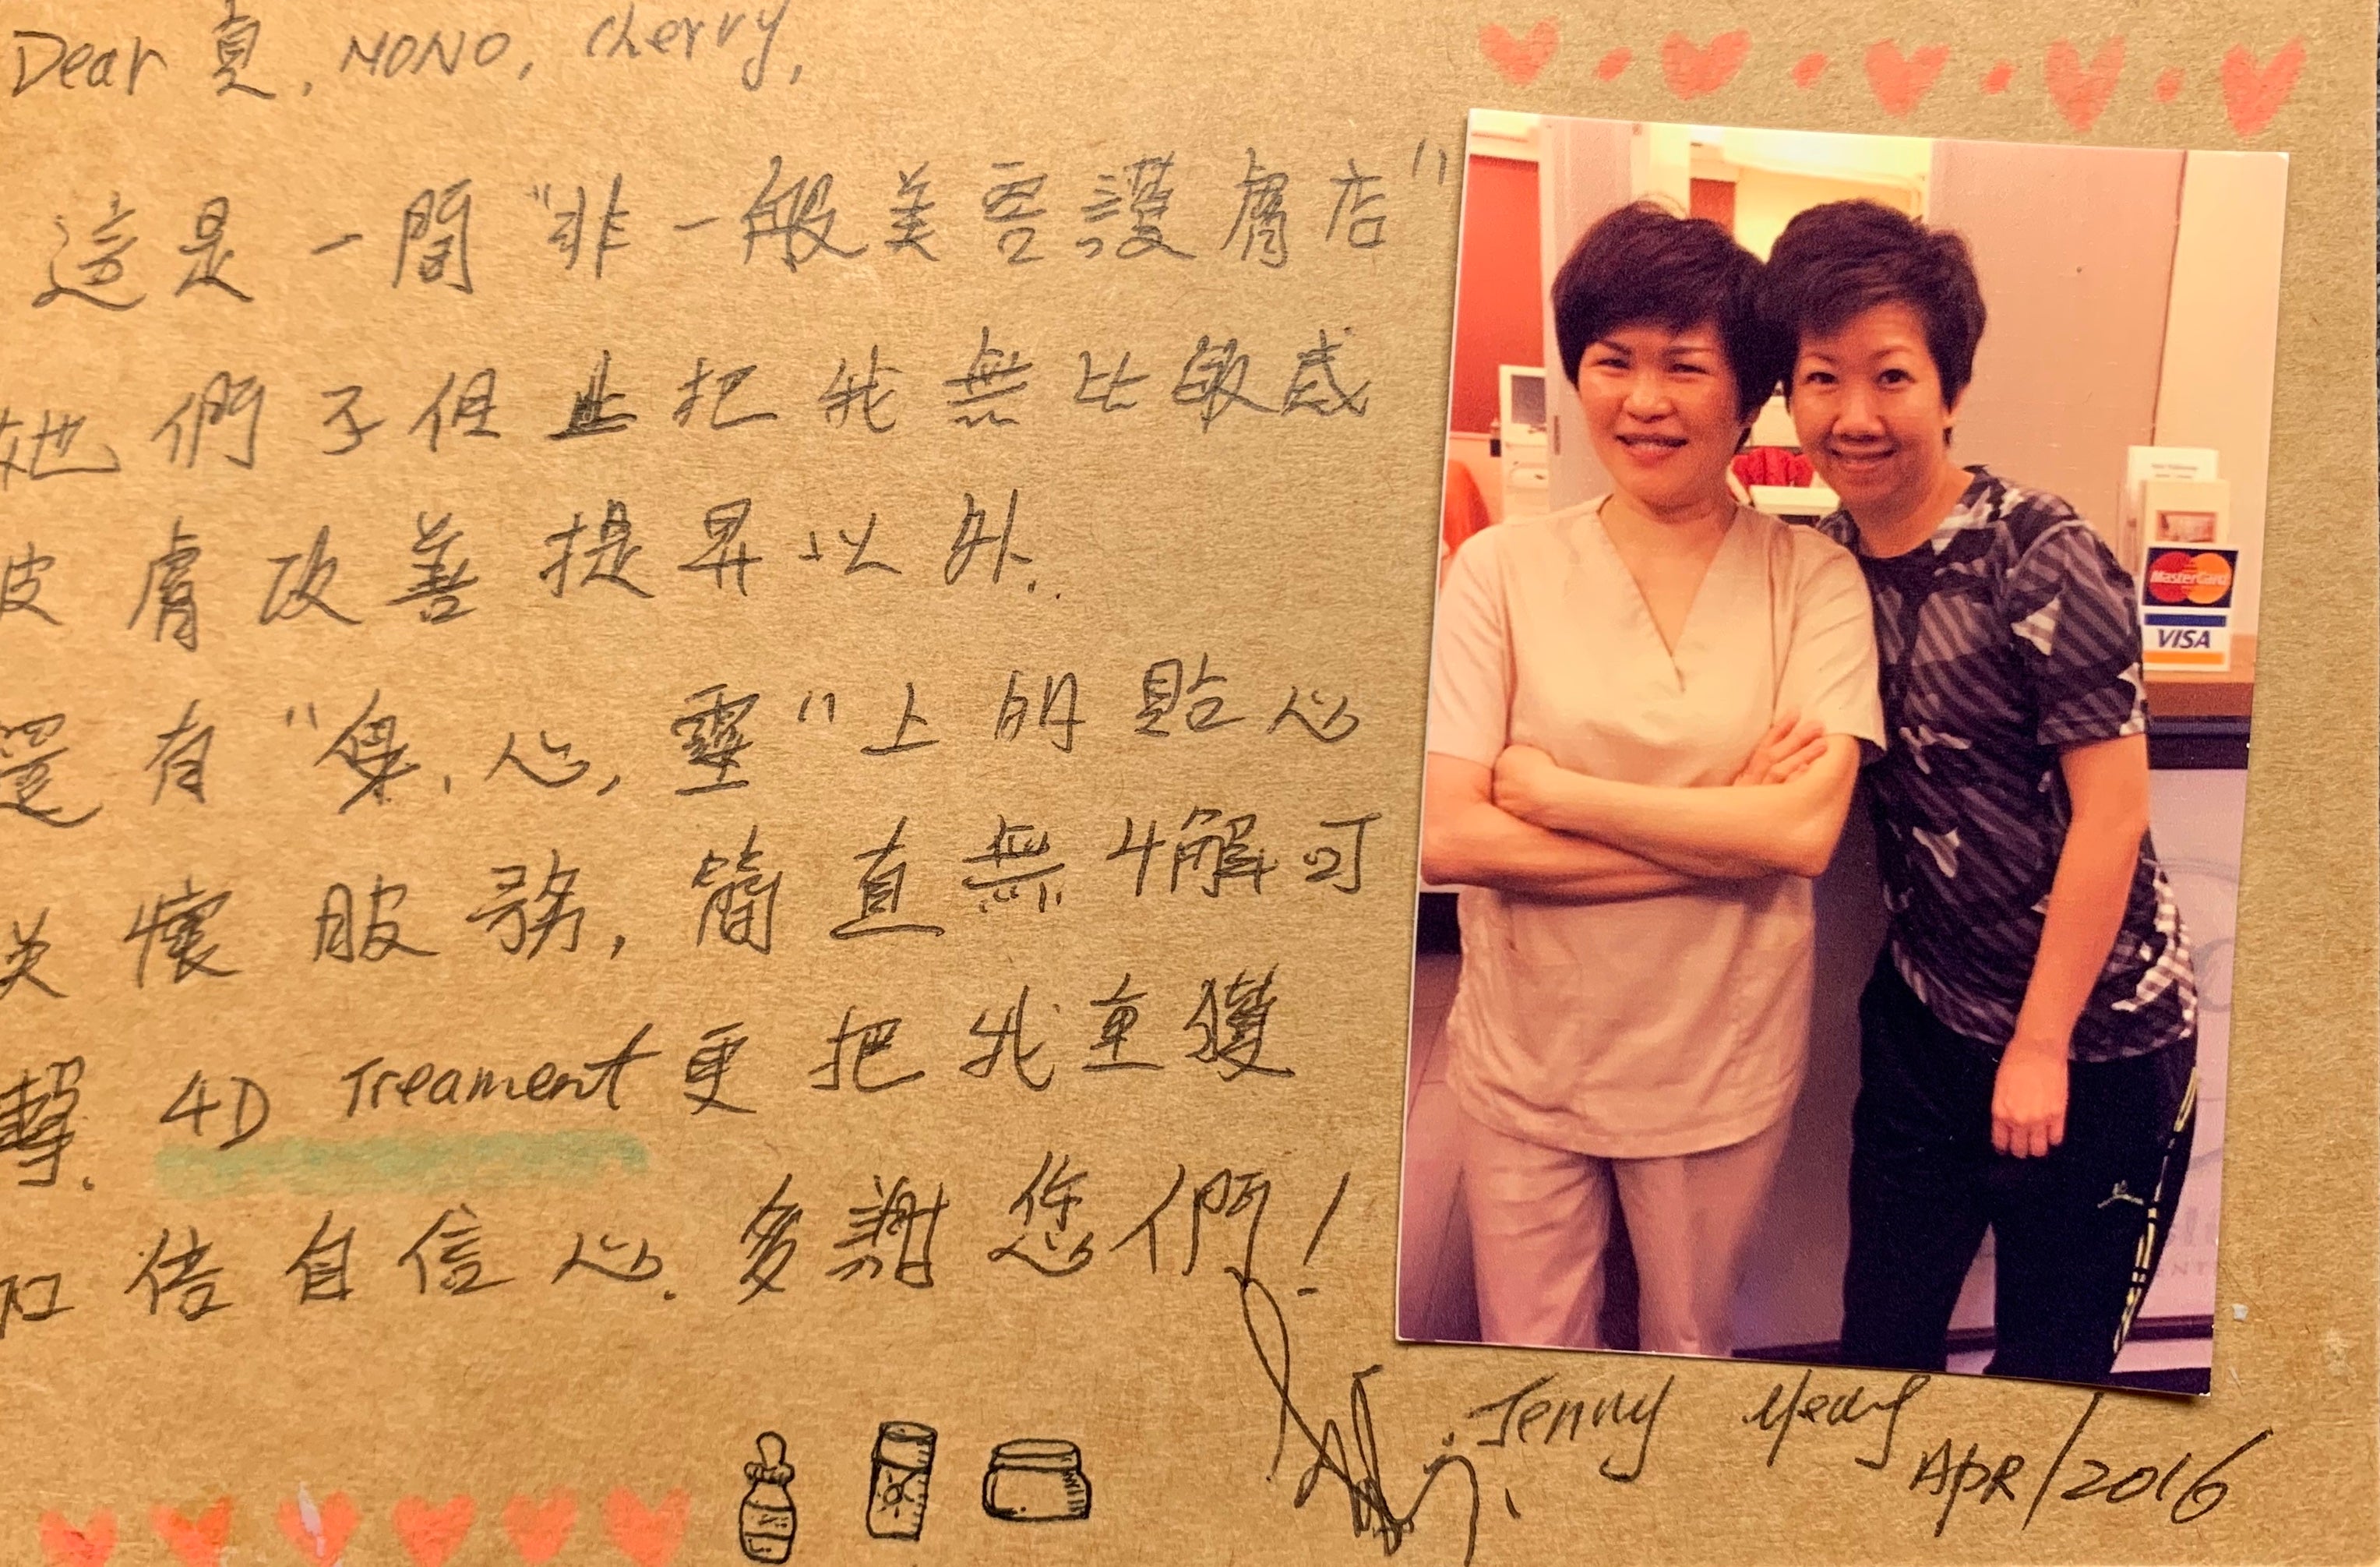 Dear 夏, MONO, cherry,
這是一間"非一般美容護膚店"
她們不但止把我無比敏感
皮膚改善提昇以外..
還有"身,心,靈"上的貼心
关懷服務,簡直無懈可
擊. 4D Treament 更把我重獲
加倍自信心. 多謝您們!
Jenny
APR/2016
MasterCard
VISA